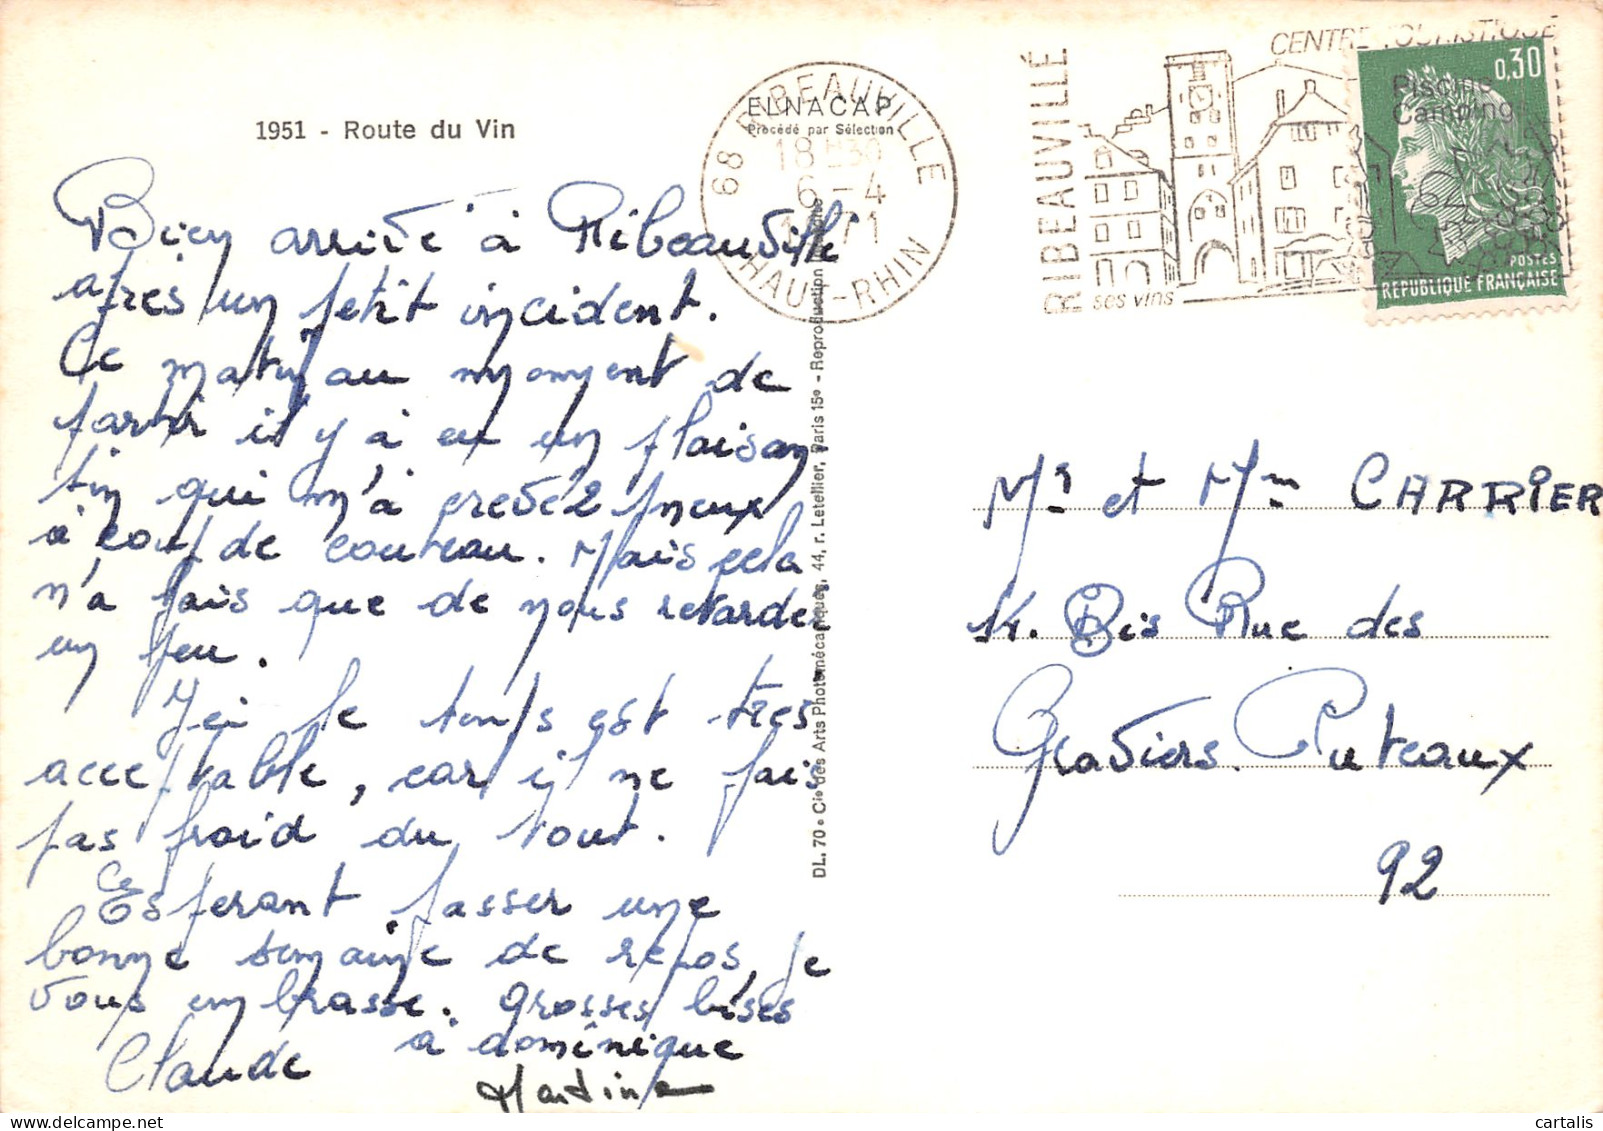 1951 - Route du Vin
Bien arrivé à Ribeauvillé
après un petit incident.
Ce matin au moment de
partir il y à eu un plaisan-
tin qui m'à crevé 2 pneux
à coup de couteau. Mais cela
n'a fais que de nous retarder
un peu.
Ici le temps est très
acceptable, car il ne fais
pas froid du tout.
Esperant passer une
bonne semaine de repos, je
vous embrasse. Grosses bises
à domînique
Claude
Martine
ELNACAP
Procédé par Sélection
DL. 70 • Cie des Arts Photomécaniques, 44, r. Letellier, Paris 15e - Reproduction
68 RIBEAUVILLE
18 H 30
6 - 4
1971
HAUT-RHIN
RIBEAUVILLÉ
CENTRE TOURISTIQUE
Piscine
Camping
ses vins
0,30
POSTES
REPUBLIQUE FRANÇAISE
Mr et Mme CARRIER
14. Bis Rue des
Graviers. Puteaux
92
cartalis